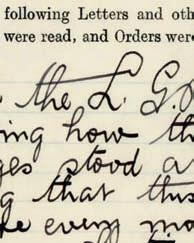 following Letters and oth
were read, and Orders were
the L. G.
ing how th
ges stood a
g that this
every mo